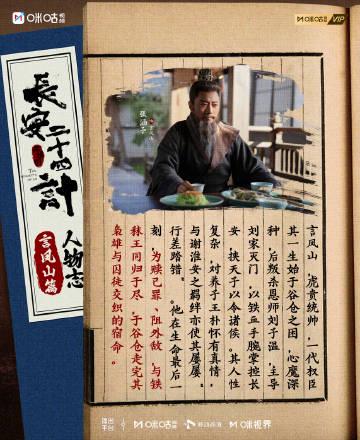 咪咕视频
咪咕视频 VIP
長安二十四計
人物志
言凤山篇
言凤山，虎贲统帅，一代权臣
其一生始于谷仓之困，心魔深
种，后叛杀恩师刘子温，主导
刘家灭门，以铁血手腕掌控长
安，挟天子以令诸侯。其人性
复杂，对养子王朴怀有真情，
与谢淮安之羁绊亦使其屡屡
行差踏错。他在生命最后一
刻，为赎己罪、阻外敌，与铁
秣王同归于尽，于谷仓走完其
枭雄与囚徒交织的宿命。
咪咕视频
移动高清
咪咕视界